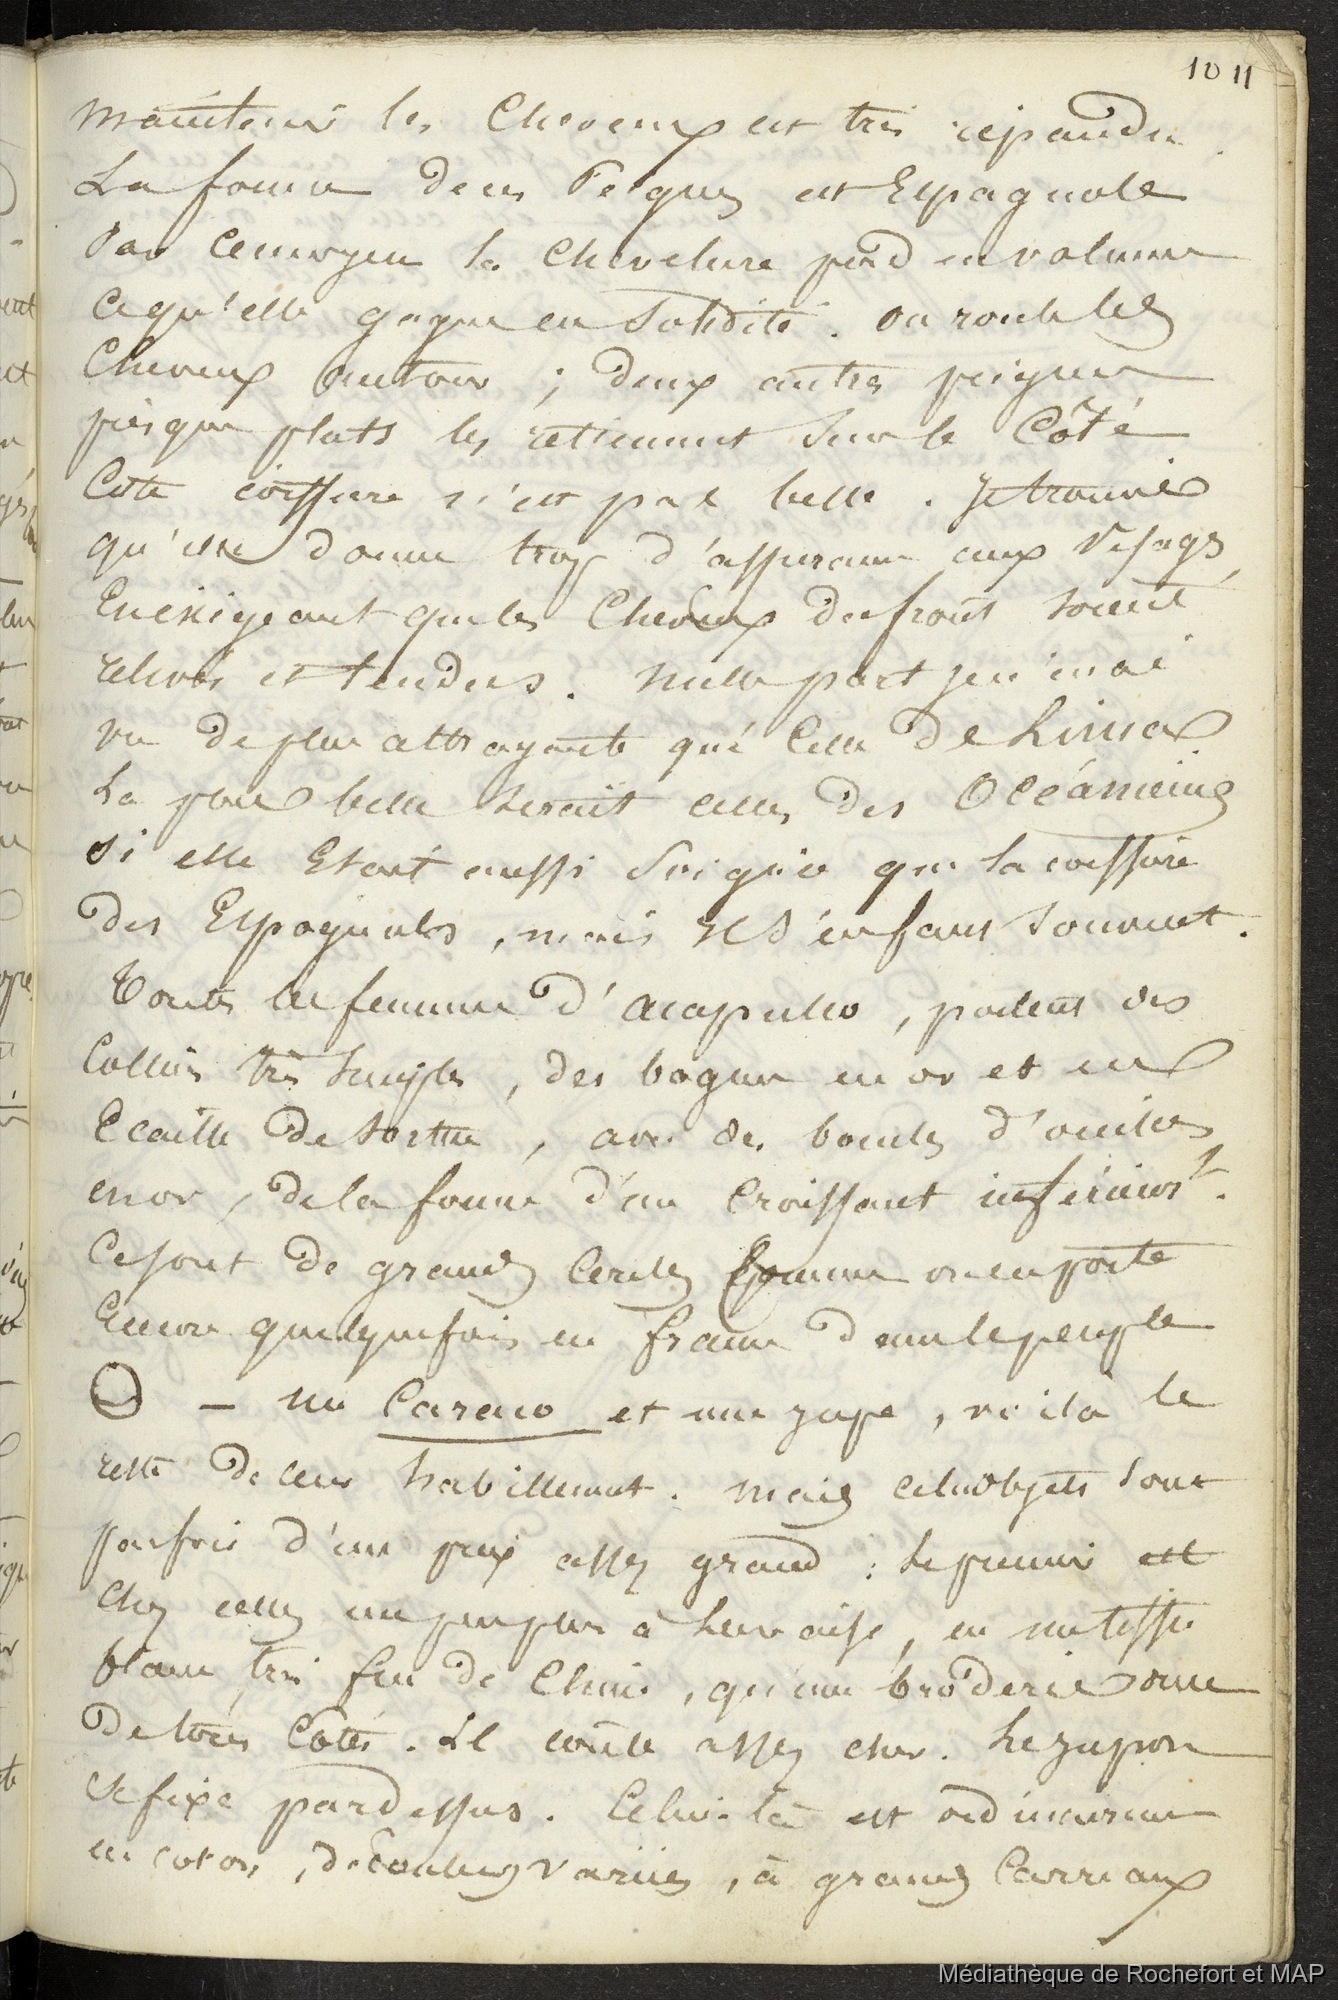 10 11
maintenir les Cheveux est très répandu.
La forme de ces Peignes est Espagnole
Par ce moyen la Chevelure perd en volume
ce qu'elle gagne en solidité. on roule les
Cheveux autour ; deux autres peignes
presque plats les retiennent sur le Côté
Cette coiffure n'est pas belle. Je trouve
qu'elle donne trop d'assurance aux visages
En exigeant que les Cheveux du front soient
relevés et tendus. Nulle part je n'en ai
vu de plus attrayante que Celle de Lima.
La plus belle serait celle des Océaniens
si elle Etait aussi soignée que la coiffure
des Espagnoles, mais souvent.
Toutes les femmes d'acapulco, portent des
Colliers très simples, des bagues en or et en
Ecaille de tortue, avec des boucles d'oreilles
en or, de la forme d'un Croissant inférieurt.
Ce sont de grands Cercles Comme on en porte
Encore quelquefois en france dans le peuple
— un Caraco et une jupe, voilà le
reste de leur habillement. mais ces objets sont
parfois d'un prix assez grand : le premier est
Chez celles un peu plus à leur aise, en un tissu
blanc très fin de Chine, qu'une broderie orne
de tous Côtés. Il coûte assez cher. Le jupon
se fixe par dessus. Celui-là est ordinairement
en coton, de Couleurs variées, à grands Carreaux
Médiathèque de Rochefort et MAP